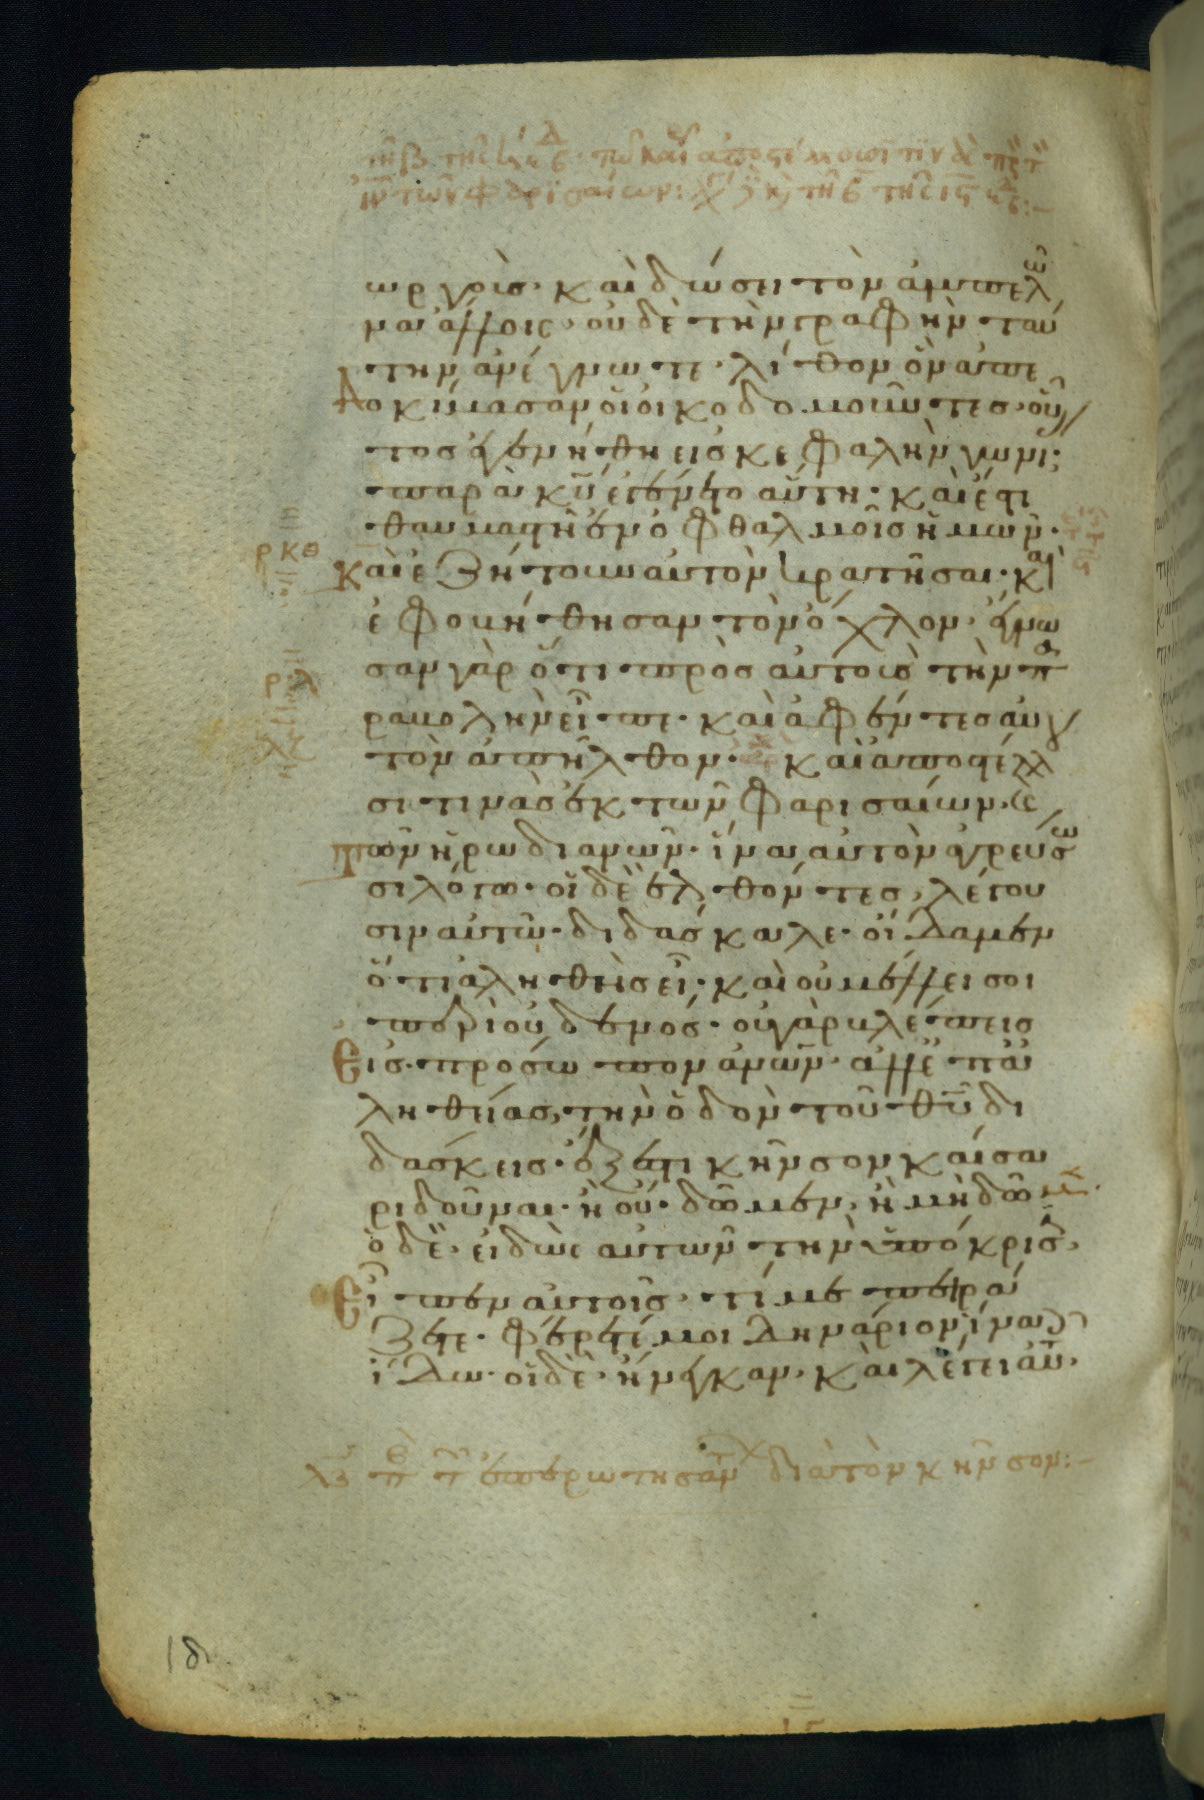 ωργοὺσ· καὶ δώσει τὸν ἀμπελῶ
να ἄλλοις· οὐδὲ τὴν γραφὴν ταύ
την ἀνέγνωτε· λίθον ὃν ἀπε
δοκίμασαν οἱ οἰκοδομοῦντεσ· οὗ
τοσ ἐγενήθη εἰσ κεφαλὴν γωνί·
παρὰ κ̅υ̅ ἐγένετο αὕτη· καὶ ἔστι
θαυμαστὴ ἐν ὀφθαλμοῖσ ἡμῶν·
ρκθ
καὶ ἐζήτουν αὐτὸν κρατῆσαι· καὶ
ἐφοβήθησαν τὸν ὄχλον· ἔγνω
σαν γὰρ ὅτι πρὸσ αὐτοὺσ τὴν πα
ρλ
ραβολὴν εἶπε· καὶ ἀφέντεσ αὐ
τὸν ἀπῆλθον· καὶ ἀποστέλλου
σι τινὰσ ἐκ τῶν φαρισαίων· καὶ
τῶν ἡρωδιανῶν· ἵνα αὐτὸν ἀγρεύσω
σι λόγω· οἱ δὲ ἐλθόντεσ, λέγου
σιν αὐτῶ· διδάσκαλε· οἴδαμεν
ὅτι ἀληθὴσ εἶ· καὶ οὐ μέλλει σοι
περὶ οὐδενόσ· οὐ γὰρ βλέπεισ
εἰσ πρόσωπον ἀνων· ἀλλ' ἐπ' ἀ
ληθείασ, τὴν ὁδὸν τοῦ θ̅υ̅ δι
δάσκεισ· ἔξεστι κῆνσον καίσα
ρι δοῦναι· ἢ οὔ· δῶμεν, ἢ μὴ δῶμεν·
ὁ δὲ· εἰδὼς αὐτῶν τὴν ὑπόκρισιν,
εἶπεν αὐτοῖσ· τί με πειρά
ζετε· φέρετέ μοι δηνάριον, ἵνα
ἴδω· οἱ δὲ· ἤνεγκαν· καὶ λέγει αὐτ·
ἐπερωτησάν διὰ τὸν κῆνσον:-
18